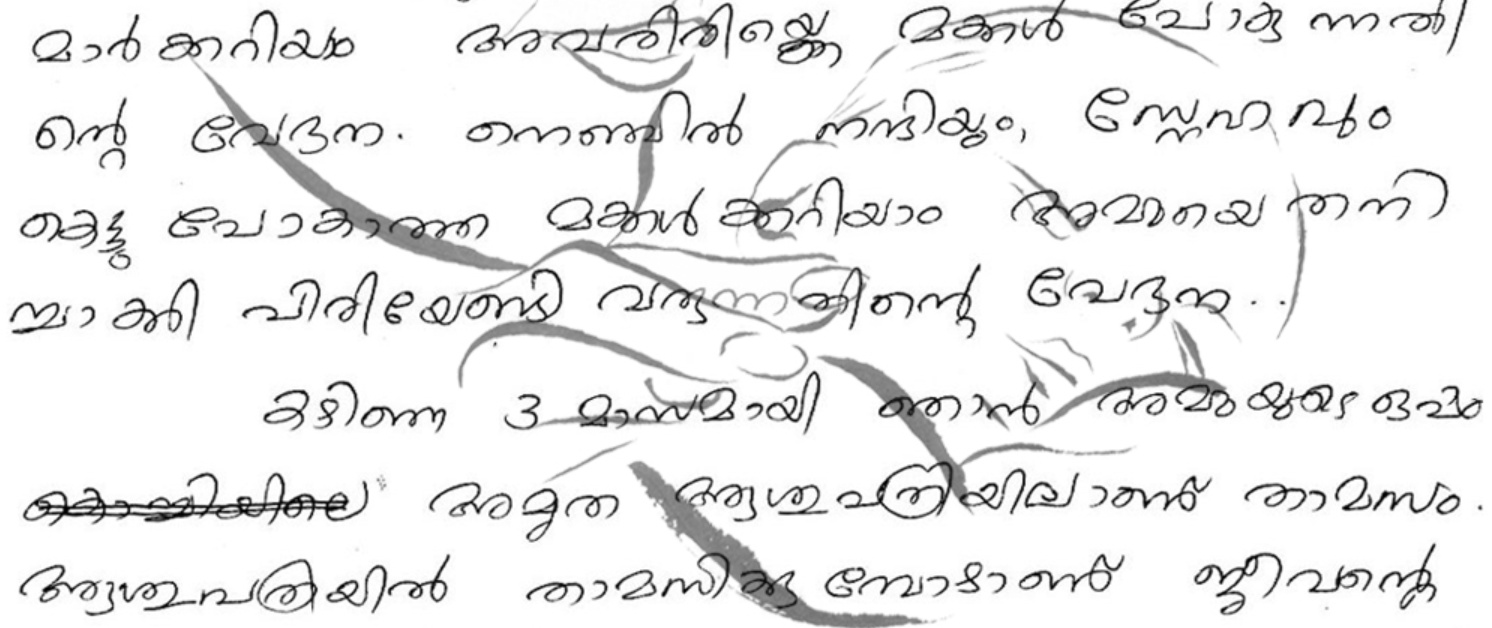 മാർക്കറിയാം അവരിരിയ്ക്കെ മക്കൾ പോകുന്നതി
ന്റെ വേദന. നെഞ്ചിൽ നന്ദിയും, സ്നേഹവും
കെട്ടു പോകാത്ത മക്കൾക്കറിയാം അമ്മയെ തനി
ച്ചാക്കി പിരിയേണ്ടി വരുന്നതിന്റെ വേദന..
കഴിഞ്ഞ 3 മാസമായി ഞാൻ അമ്മയുടെ ഒപ്പം
കൊച്ചിയിലെ അമൃത ആശുപത്രിയിലാണ് താമസം.
ആശുപത്രിയിൽ താമസിക്കുമ്പോഴാണ് ജീവന്റെ